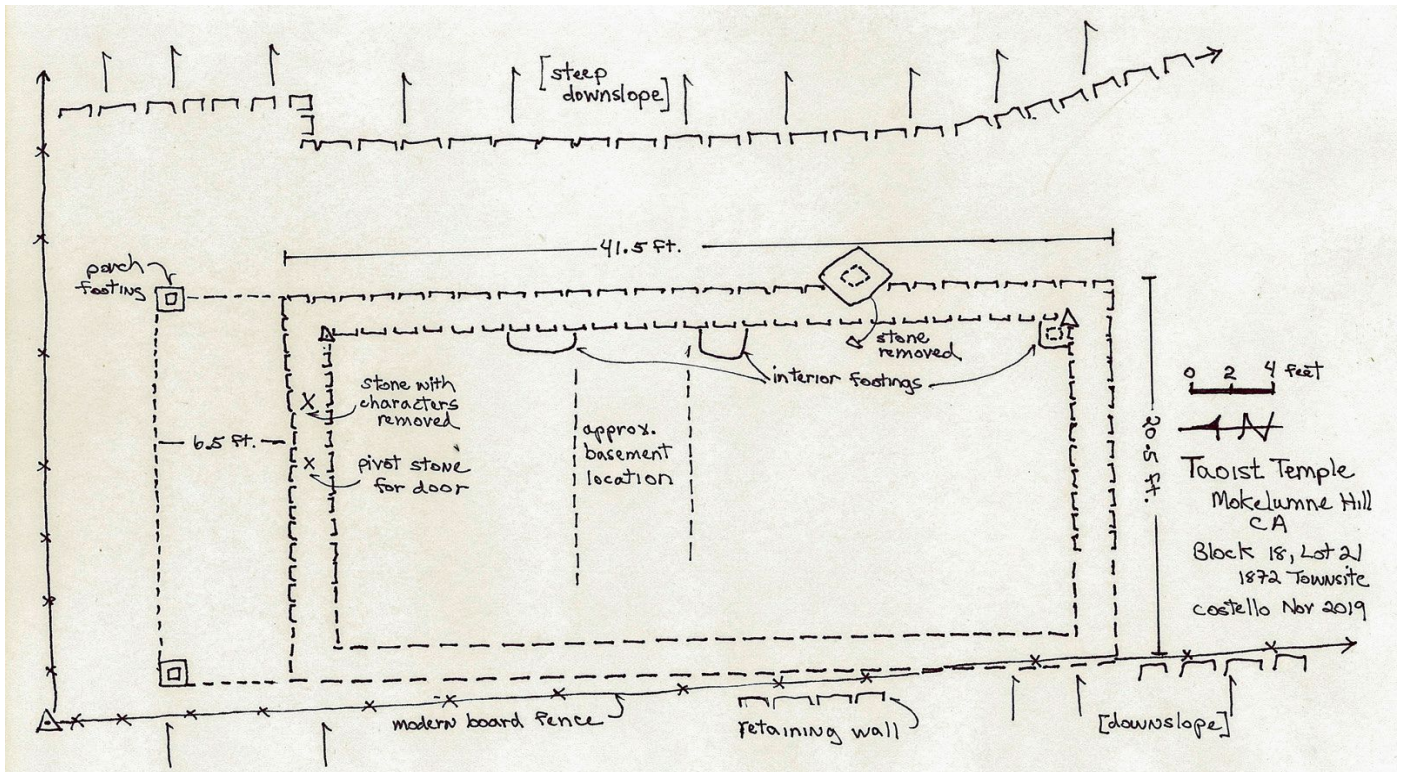 [steep
downslope]
41.5 ft.
porch
footing
stone
removed
interior footings
stone with
characters
removed
6.5 ft.
pivot stone
for door
approx.
basement
location
20.5 ft.
0 2 4 feet
N
Taoist Temple
Mokelumne Hill
CA
Block 18, Lot 21
1872 Townsite
Costello Nov 2019
modern board fence
retaining wall
[downslope]